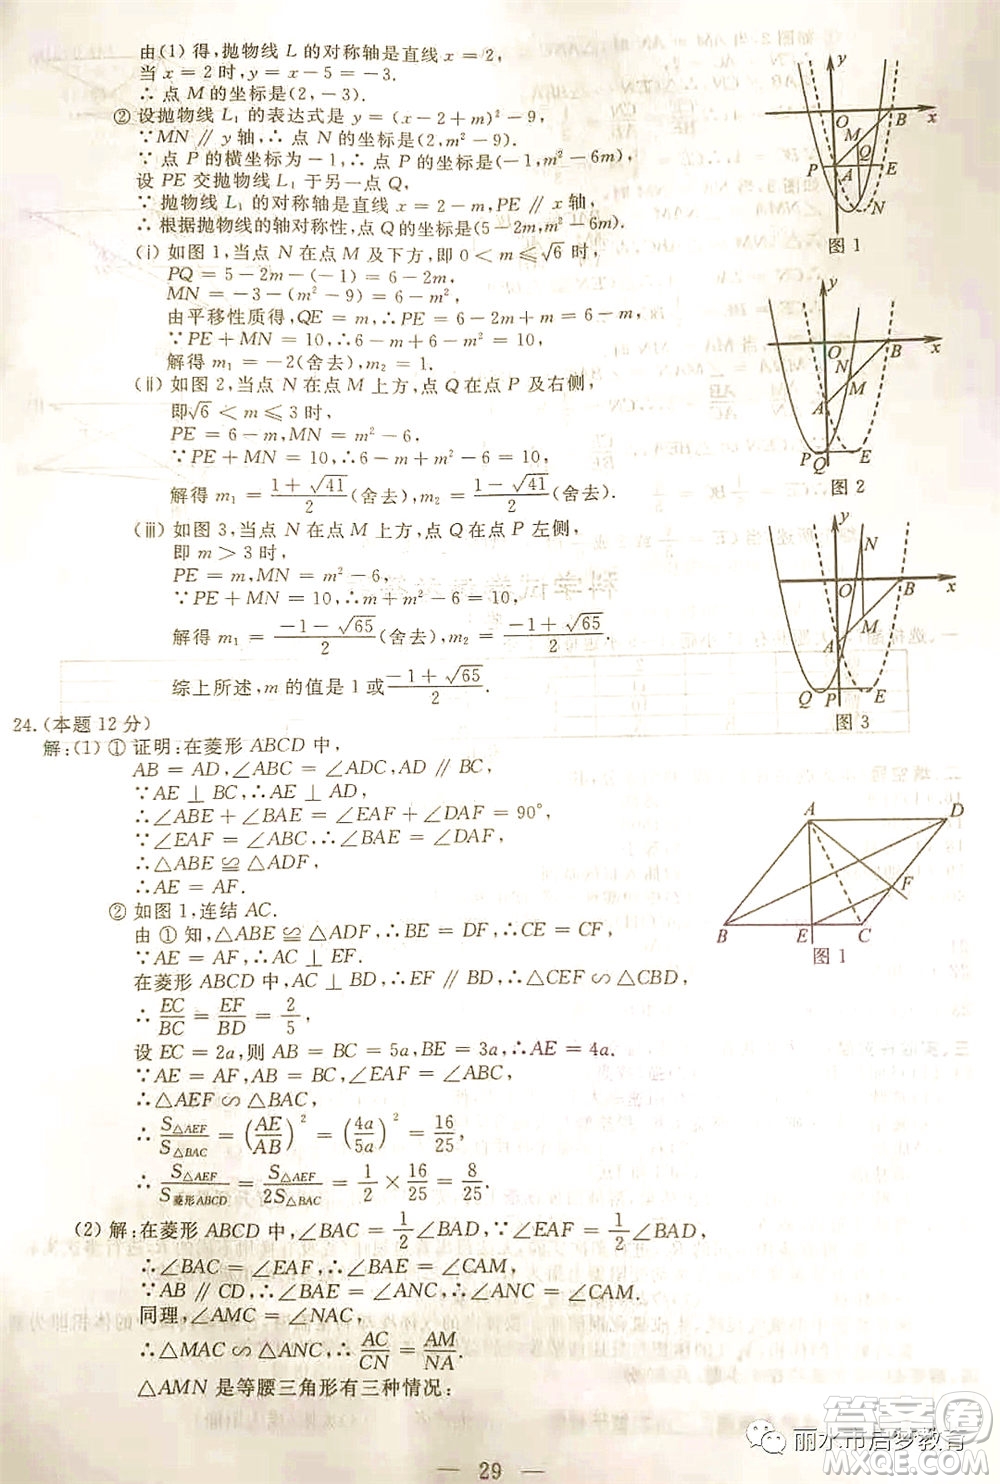 由(1)得,抛物线 L 的对称轴是直线 x=2,
当 x=2 时,y=5-m=-3.
∴ 点 M 的坐标是(2,-3).
② 设抛物线 L₁ 的表达式是 y=(x-2+m)²-9,
∵MN∥y 轴,∴ 点 N 的坐标是(2,m²-9).
∵ 点 P 的横坐标为-1,∴ 点 P 的坐标是(-1,m²-6m),
设 PE 交抛物线 L₁ 于另一点 Q,
∵ 抛物线 L₁ 的对称轴是直线 x=2-m,PE∥x 轴,
∴ 根据抛物线的轴对称性,点 Q 的坐标是(5-2m,m²-6m).
(i) 如图 1,当点 N 在点 M 及下方,即 0<m≤√6 时,
PQ=5-2m-(-1)=6-2m,
MN=-3-(m²-9)=6-m²,
由平移性质得,QE=m,∴PE=6-2m+m=6-m,
∵PE+MN=10,∴6-m+6-m²=10,
解得 m₁=-2(舍去),m₂=1.
(ii) 如图 2,当点 N 在点 M 上方,点 Q 在点 P 及右侧,
即√6<m≤3 时,
PE=6-m,MN=m²-6,
∵PE+MN=10,∴6-m+m²-6=10,
解得 m₁=(1+√41)/2(舍去),m₂=(1-√41)/2(舍去).
(iii) 如图 3,当点 N 在点 M 上方,点 Q 在点 P 左侧,
即 m>3 时,
PE=m,MN=m²-6,
∵PE+MN=10,∴m+m²-6=10,
解得 m₁=(-1-√65)/2(舍去),m₂=(-1+√65)/2.
综上所述,m 的值是 1 或(-1+√65)/2.
y
O
B
x
M
P
A
Q
E
N
图 1
y
O
B
x
N
M
A
P
Q
E
图 2
y
N
O
B
x
M
A
Q
P
E
图 3
24.(本题 12 分)
解:(1) ① 证明:在菱形 ABCD 中,
AB=AD,∠ABC=∠ADC,AD∥BC.
∵AE⊥BC,∴AE⊥AD,
∴∠ABE+∠BAE=∠EAF+∠DAF=90°.
∵∠EAF=∠ABC,∴∠BAE=∠DAF,
∴△ABE≌△ADF,
∴AE=AF.
② 如图 1,连结 AC.
由 ① 知,△ABE≌△ADF,∴BE=DF,∴CE=CF.
∵AE=AF,∴AC⊥EF.
在菱形 ABCD 中,AC⊥BD,∴EF∥BD,∴△CEF∽△CBD,
∴EC/BC=EF/BD=2/5,
设 EC=2a,则 AB=BC=5a,BE=3a,∴AE=4a.
∵AE=AF,AB=BC,∠EAF=∠ABC,
∴△AEF∽△BAC,
∴S△AEF/S△BAC=(AE/AB)²=(4a/5a)²=16/25,
∴S△AEF/S菱形ABCD=S△AEF/2S△BAC=1/2×16/25=8/25.
A
D
F
B
E
C
图 1
(2) 解:在菱形 ABCD 中,∠BAC=1/2∠BAD,∵∠EAF=1/2∠BAD,
∴∠BAC=∠EAF,∴∠BAE=∠CAM,
∵AB∥CD,∴∠BAE=∠ANC,∴∠ANC=∠CAM.
同理,∠AMC=∠NAC,
∴△MAC∽△ANC,∴AC/CN=AM/NA.
△AMN 是等腰三角形有三种情况:
— 29 —
丽水市启梦教育
答案圈
MXQE.COM